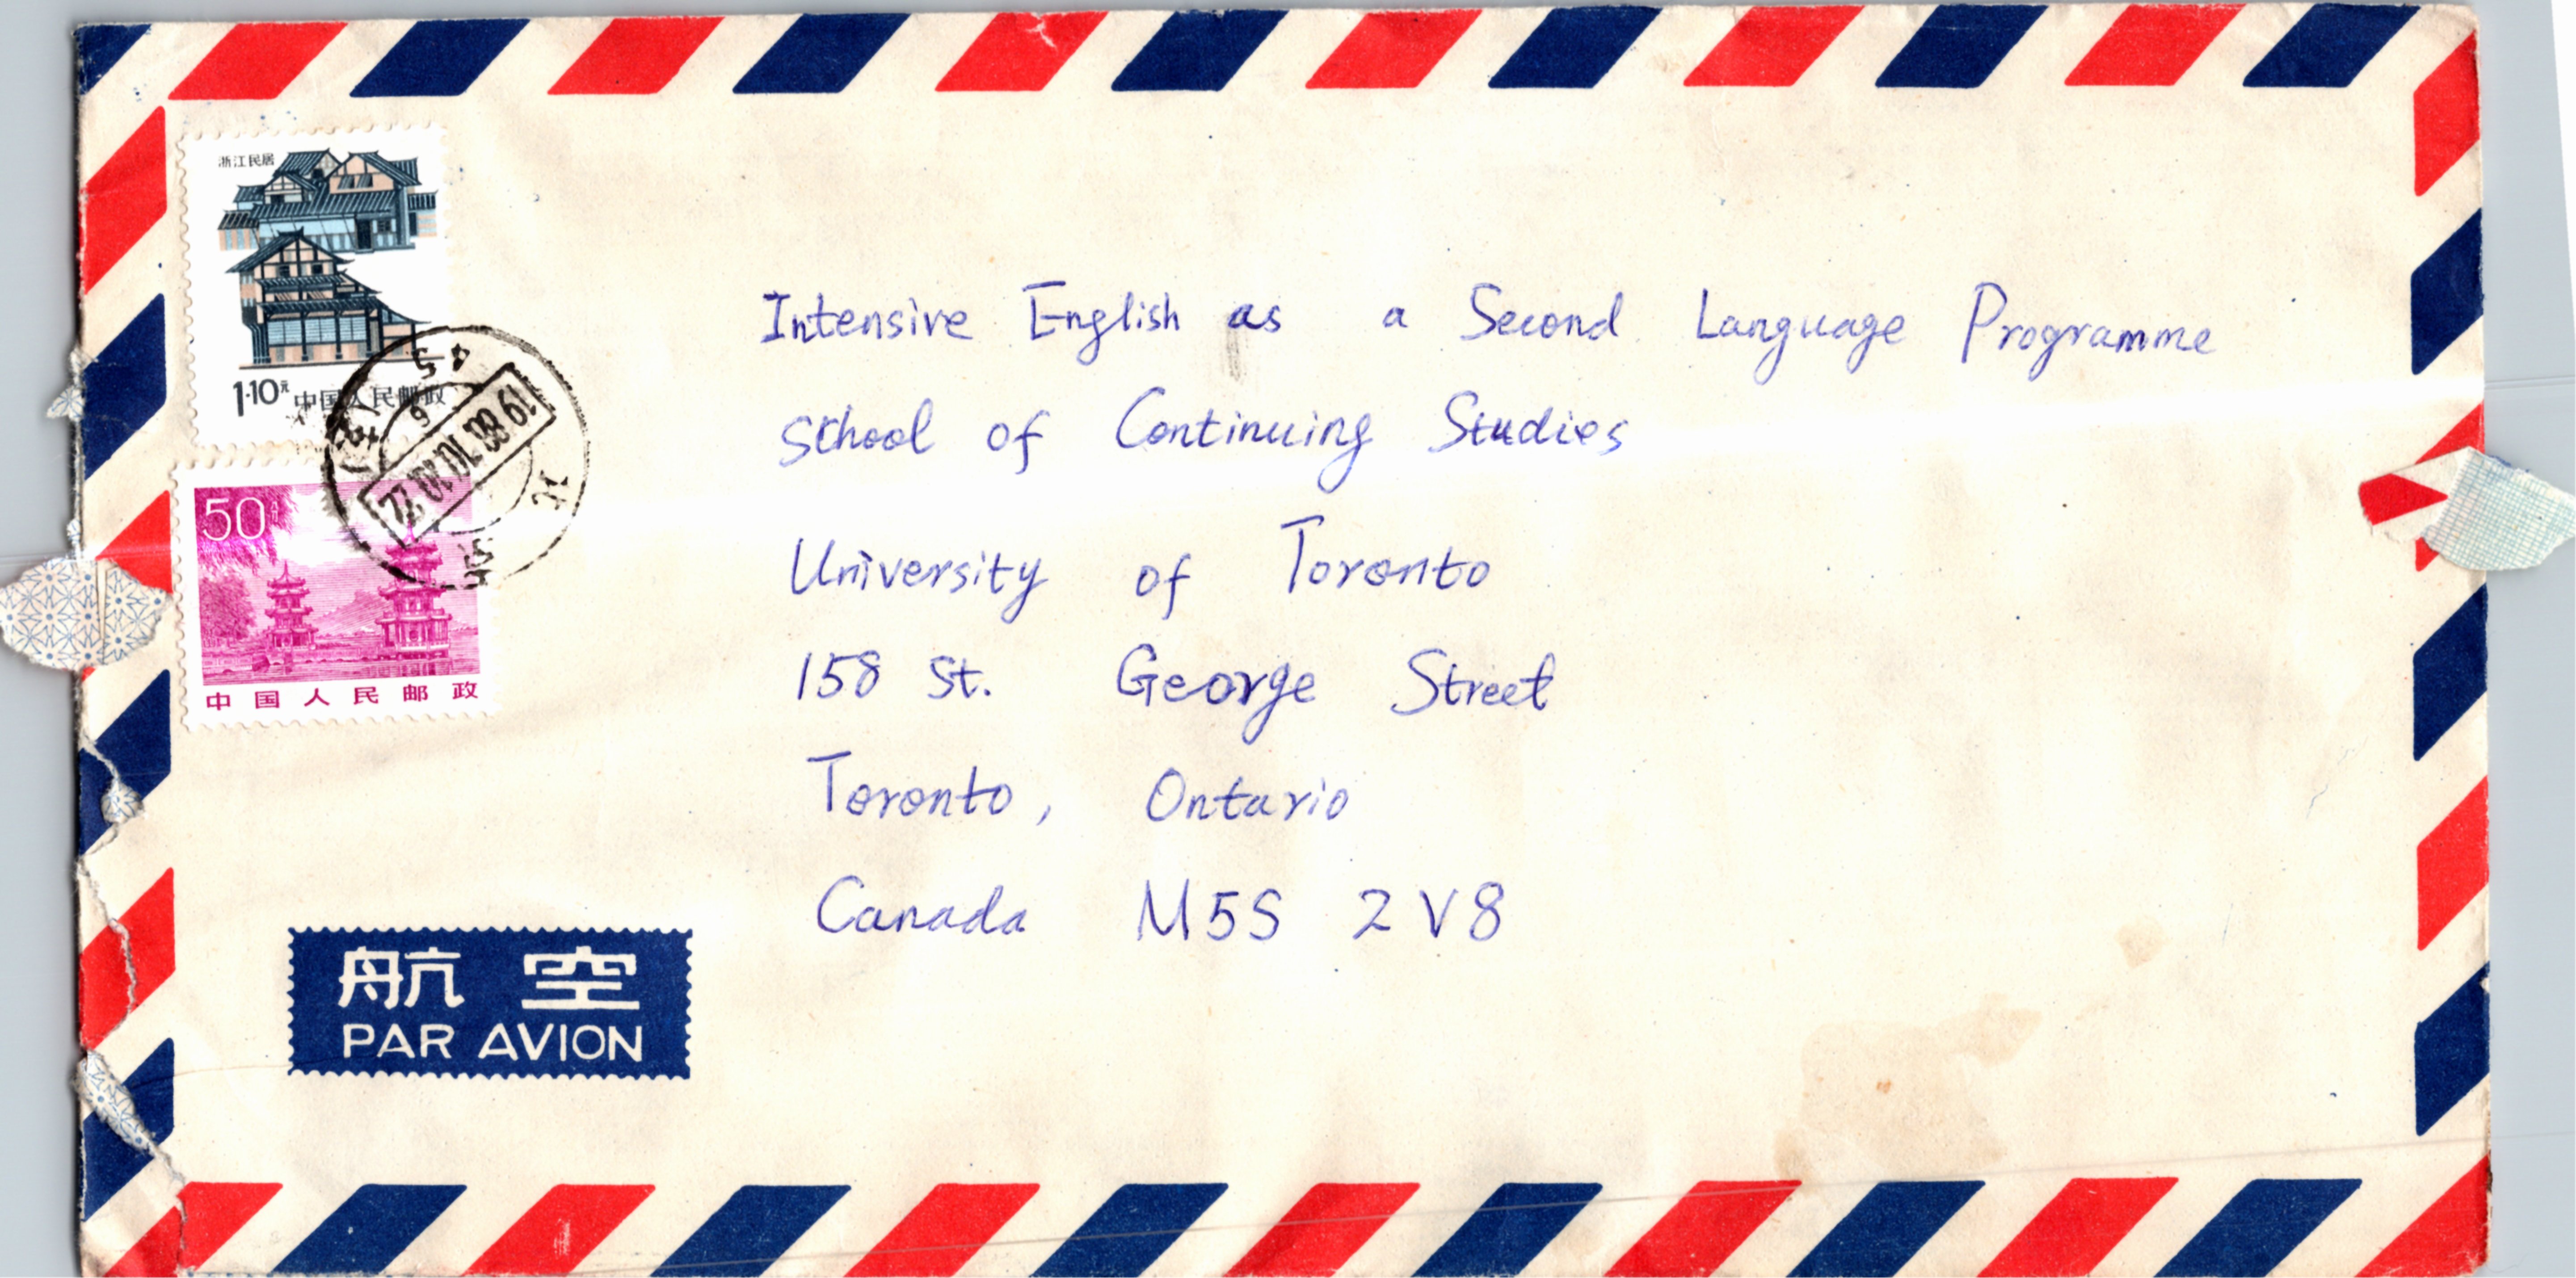 浙江民居
1·10元 中国人民邮政
1988.10.10.22
50分
中国人民邮政
Intensive English as a Second Language Programme
School of Continuing Studies
University of Toronto
158 St. George Street
Toronto, Ontario
Canada M5S 2V8
航空
PAR AVION